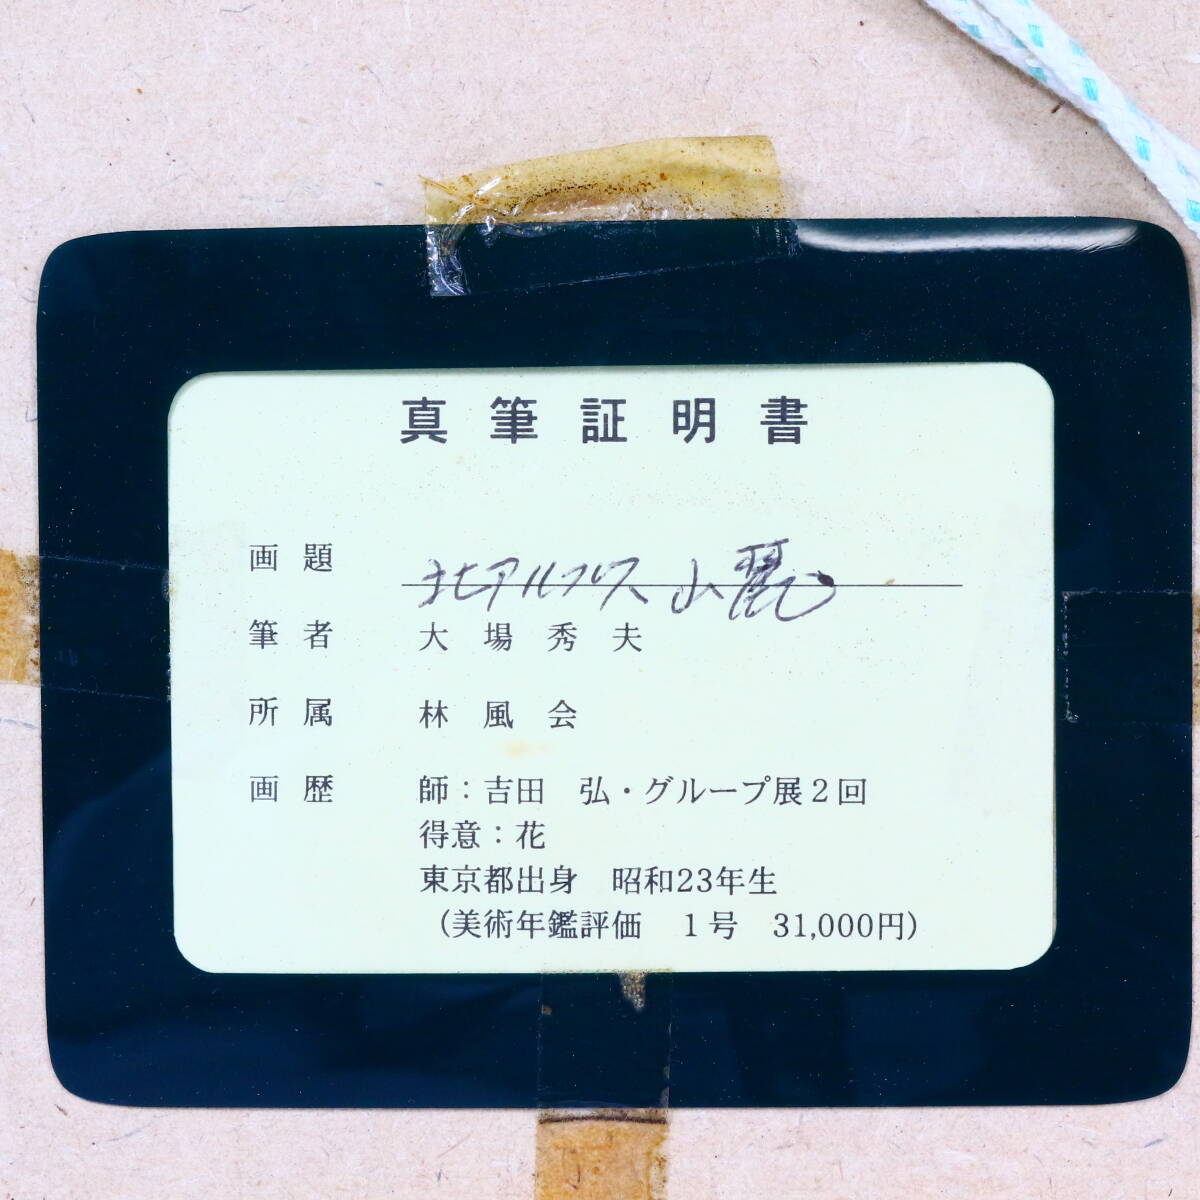 真筆証明書
画題 北アルプス山麓
筆者 大場秀夫
所属 林風会
画歴 師：吉田 弘・グループ展２回
得意：花
東京都出身 昭和23年生
（美術年鑑評価 １号 31,000円）